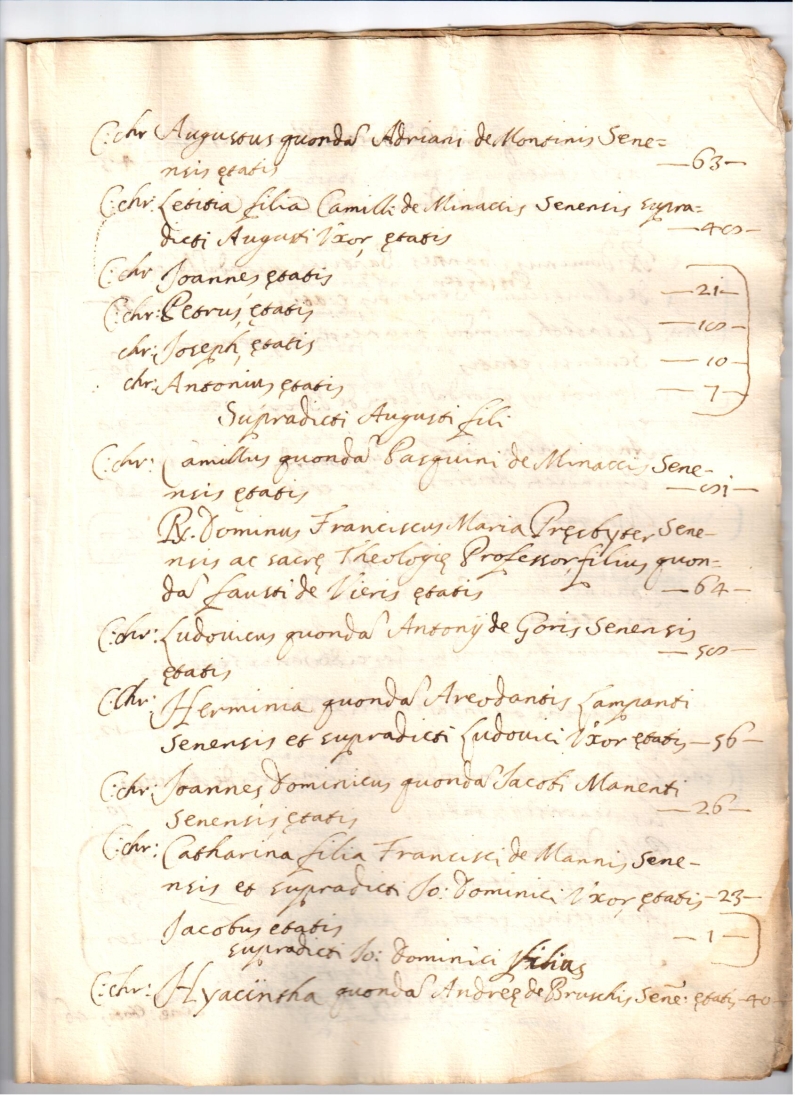 C: chr Augustus quondā Adriani de Montinis Sene=
nsis ętatis —63—
C: chr: Letitia filia Camilli de Minaccis Senensis supra=
dicti Augusti Uxor ętatis —48—
C: chr Joannes ętatis —21—
C: chr: Petrus ętatis —18—
chr: Joseph ętatis —10—
chr: Antonius ętatis —7—
Supradicti Augusti fili
C: chr: Camillus quondā Pasquini de Minaccis Sene-
nsis ętatis —81—
Rs. Dominus Franciscus Maria Pręsbyter Sene-
nsis ac sacrę Theologię Professor filius quon=
dā fausti de Vieris ętatis —64—
C: chr: Ludovicus quondā Antonij de Goris Senensis
ętatis —58—
C: chr: Herminia quondā Areodantis Lampanti
Senensis et supradicti Ludovici Uxor ętatis —56—
C: chr: Joannes Dominicus quondā Jacobi Manenti
Senensis ętatis —26—
C: chr: Catharina filia Francisci de Mannis Sene-
nsis et supradicti Jo: Dominici Uxor ętatis —23—
Jacobus etatis —1—
supradicti Jo: Dominici filius
C: chr: Hyacintha quondā Andreę de Bruschis Senē: ętatis —40